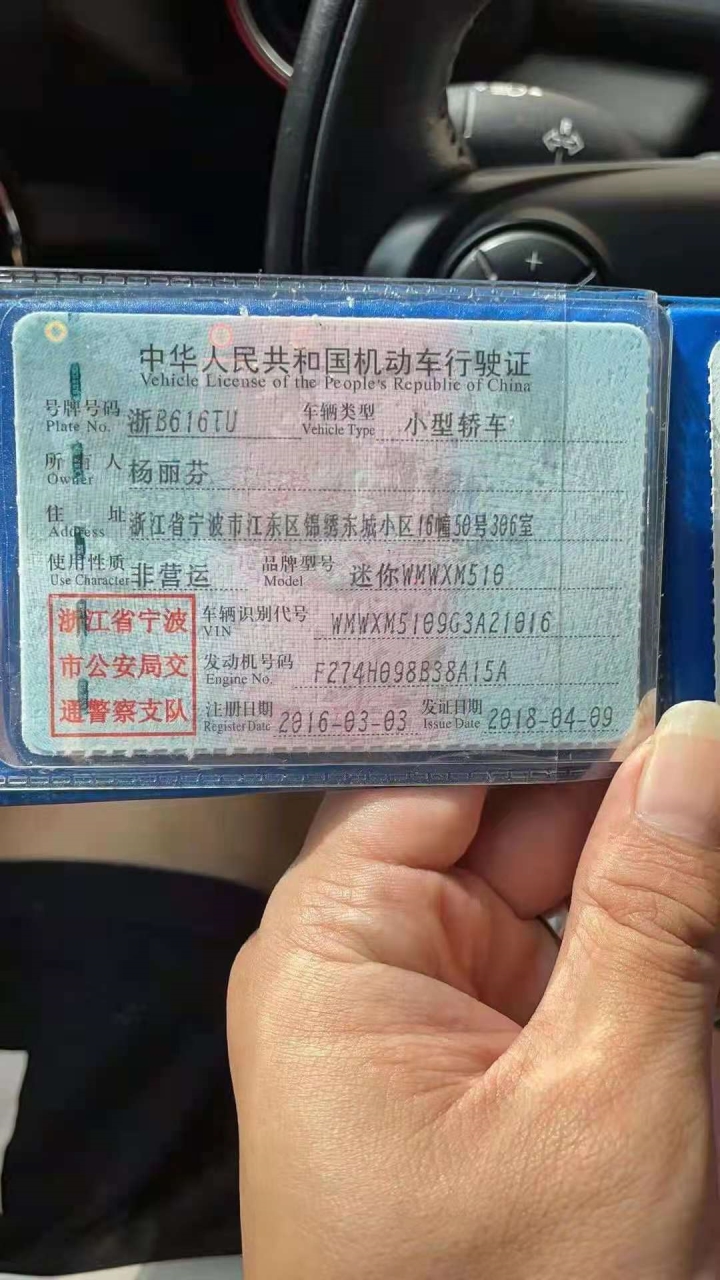 中华人民共和国机动车行驶证
Vehicle License of the People's Republic of China
号牌号码 浙B616TU 车辆类型 小型轿车
Plate No. Vehicle Type
所有人 杨丽芬
Owner
住址 浙江省宁波市江东区锦绣东城小区16幢50号306室
Address
使用性质 非营运 品牌型号 迷你WMWXM510
Use Character Model
浙江省宁波
市公安局交
通警察支队
车辆识别代号 WMWXM5109G3A21016
VIN
发动机号码 F274H098B38A15A
Engine No.
注册日期 2016-03-03 发证日期 2018-04-09
Register Date Issue Date
+